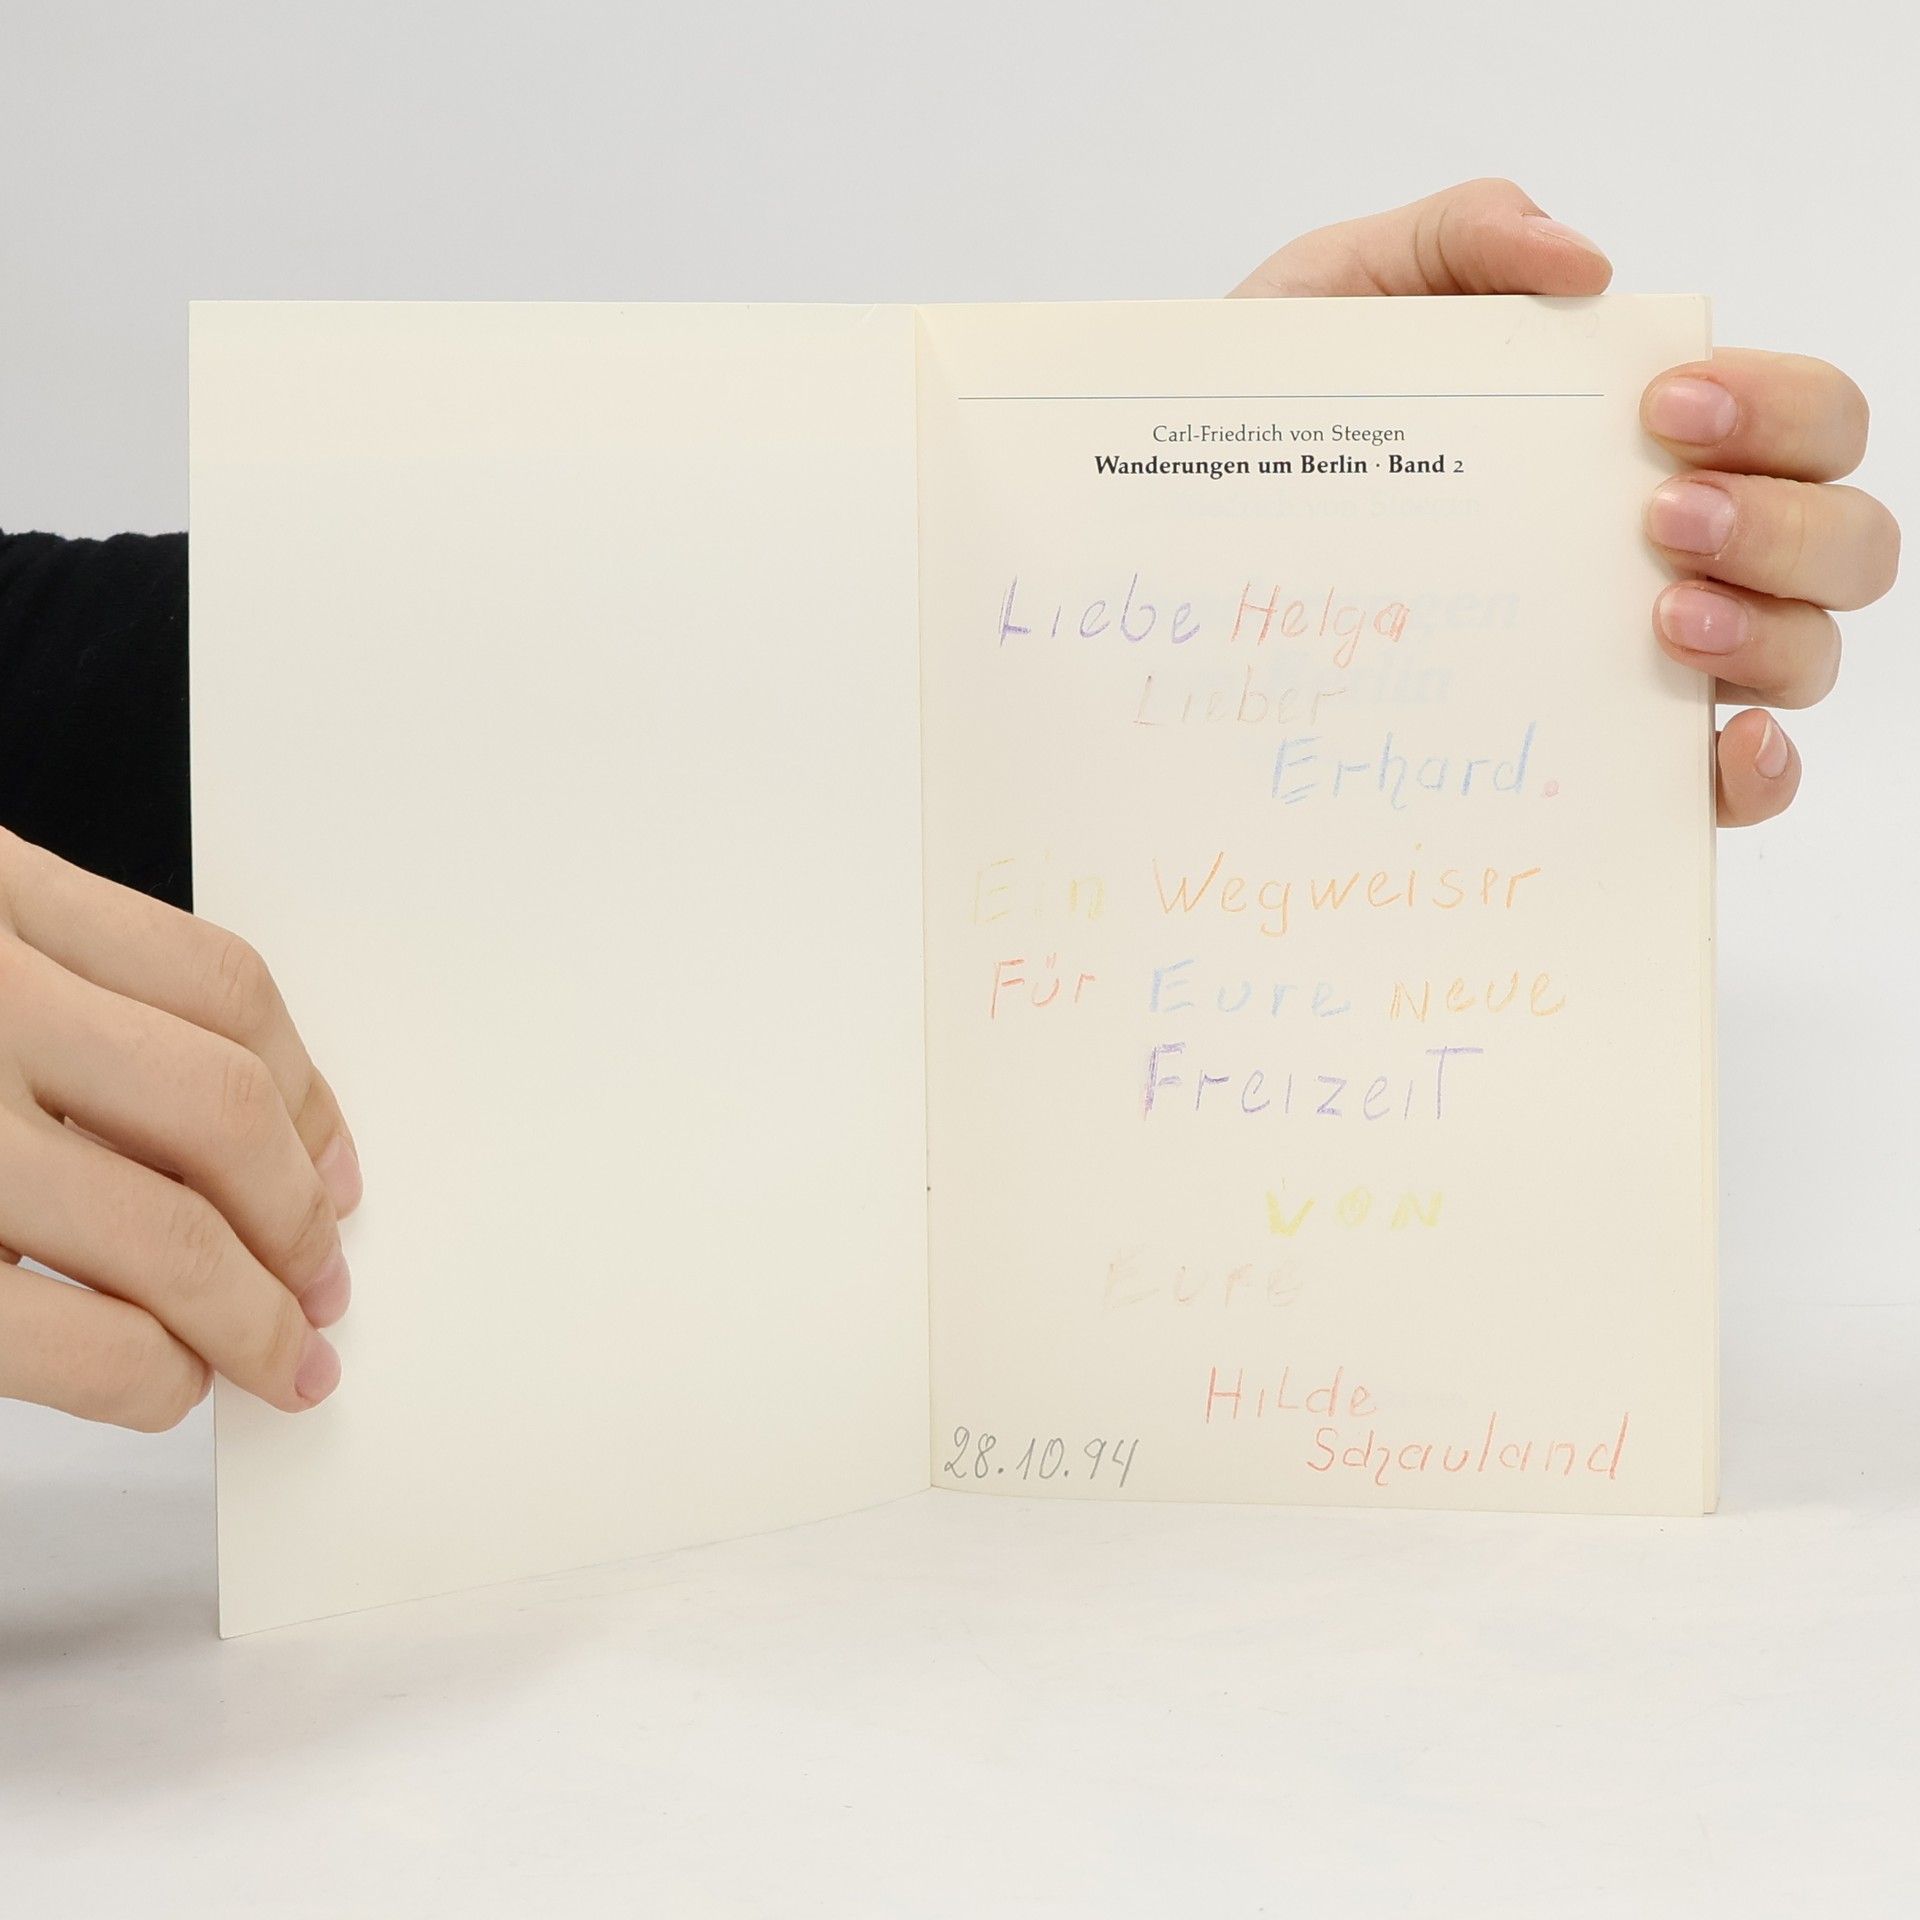 Carl-Friedrich von Steegen
Wanderungen um Berlin · Band 2
Liebe Helga
Lieber
Erhard.
Ein Wegweiser
Für Eure neue
Freizeit
von
Eure
Hilde
Schauland
28.10.94